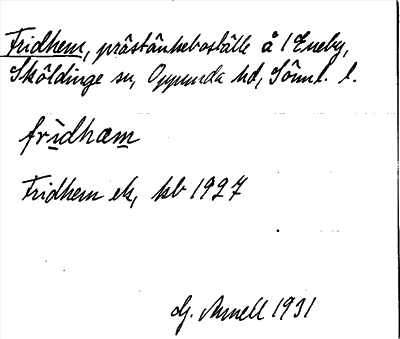 Fridhem, prästänkeboställe å 1 Eneby,
Sköldinge sn, Oppunda hd, Söml. l.
frìdhæm
Fridhem ek, kb 1927
G. Annell 1931